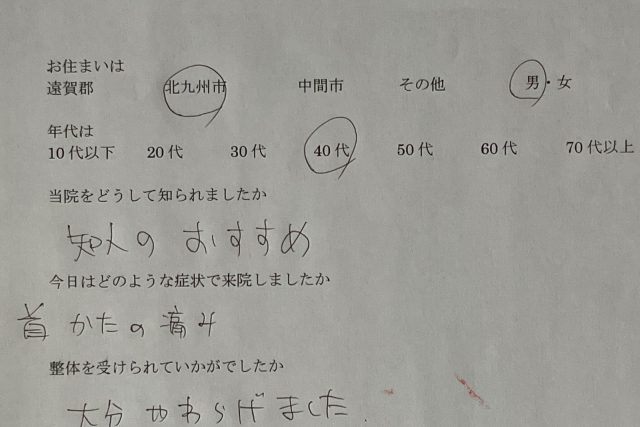 お住まいは
遠賀郡 北九州市 中間市 その他 男・女
年代は
10代以下 20代 30代 40代 50代 60代 70代以上
当院をどうして知られましたか
知人のおすすめ
今日はどのような症状で来院しましたか
首かたの痛み
整体を受けられていかがでしたか
大分やわらげました.